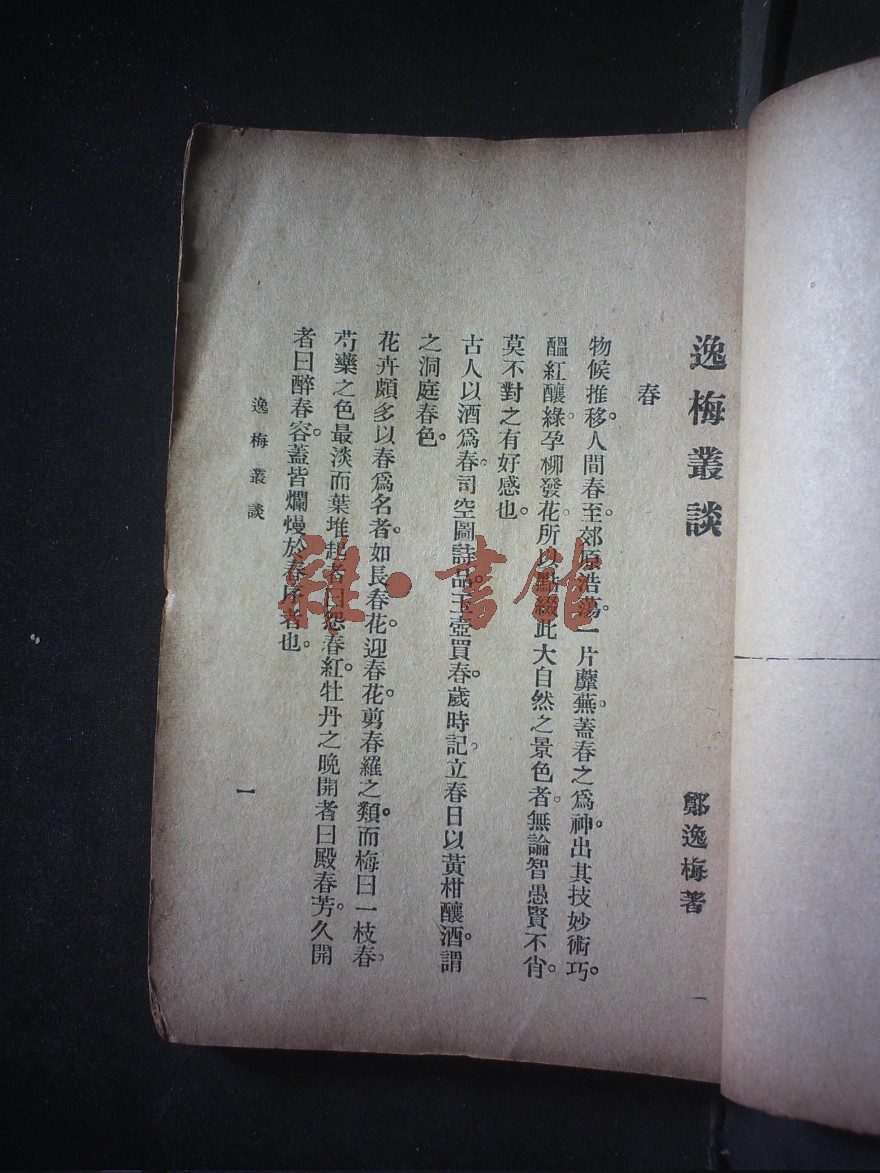 逸梅叢談
鄭逸梅著
春
物候推移。人間春至。郊原浩蕩。一片蘼蕪。蓋春之爲神。出其技妙術巧。
醞紅釀綠。孕柳發花。所以點綴此大自然之景色者。無論智愚賢不肖。
莫不對之有好感也。
古人以酒爲春。司空圖詩品。玉壺買春。歲時記。立春日以黃柑釀酒。謂
之洞庭春色。
花卉頗多以春爲名者。如長春花。迎春花。剪春羅之類。而梅曰一枝春。
芍藥之色最淡而葉堆起者曰怨春紅。牡丹之晚開者曰殿春芳。久開
者曰醉春容。蓋皆爛熳於春序者也。
逸梅叢談
一
雜·書館